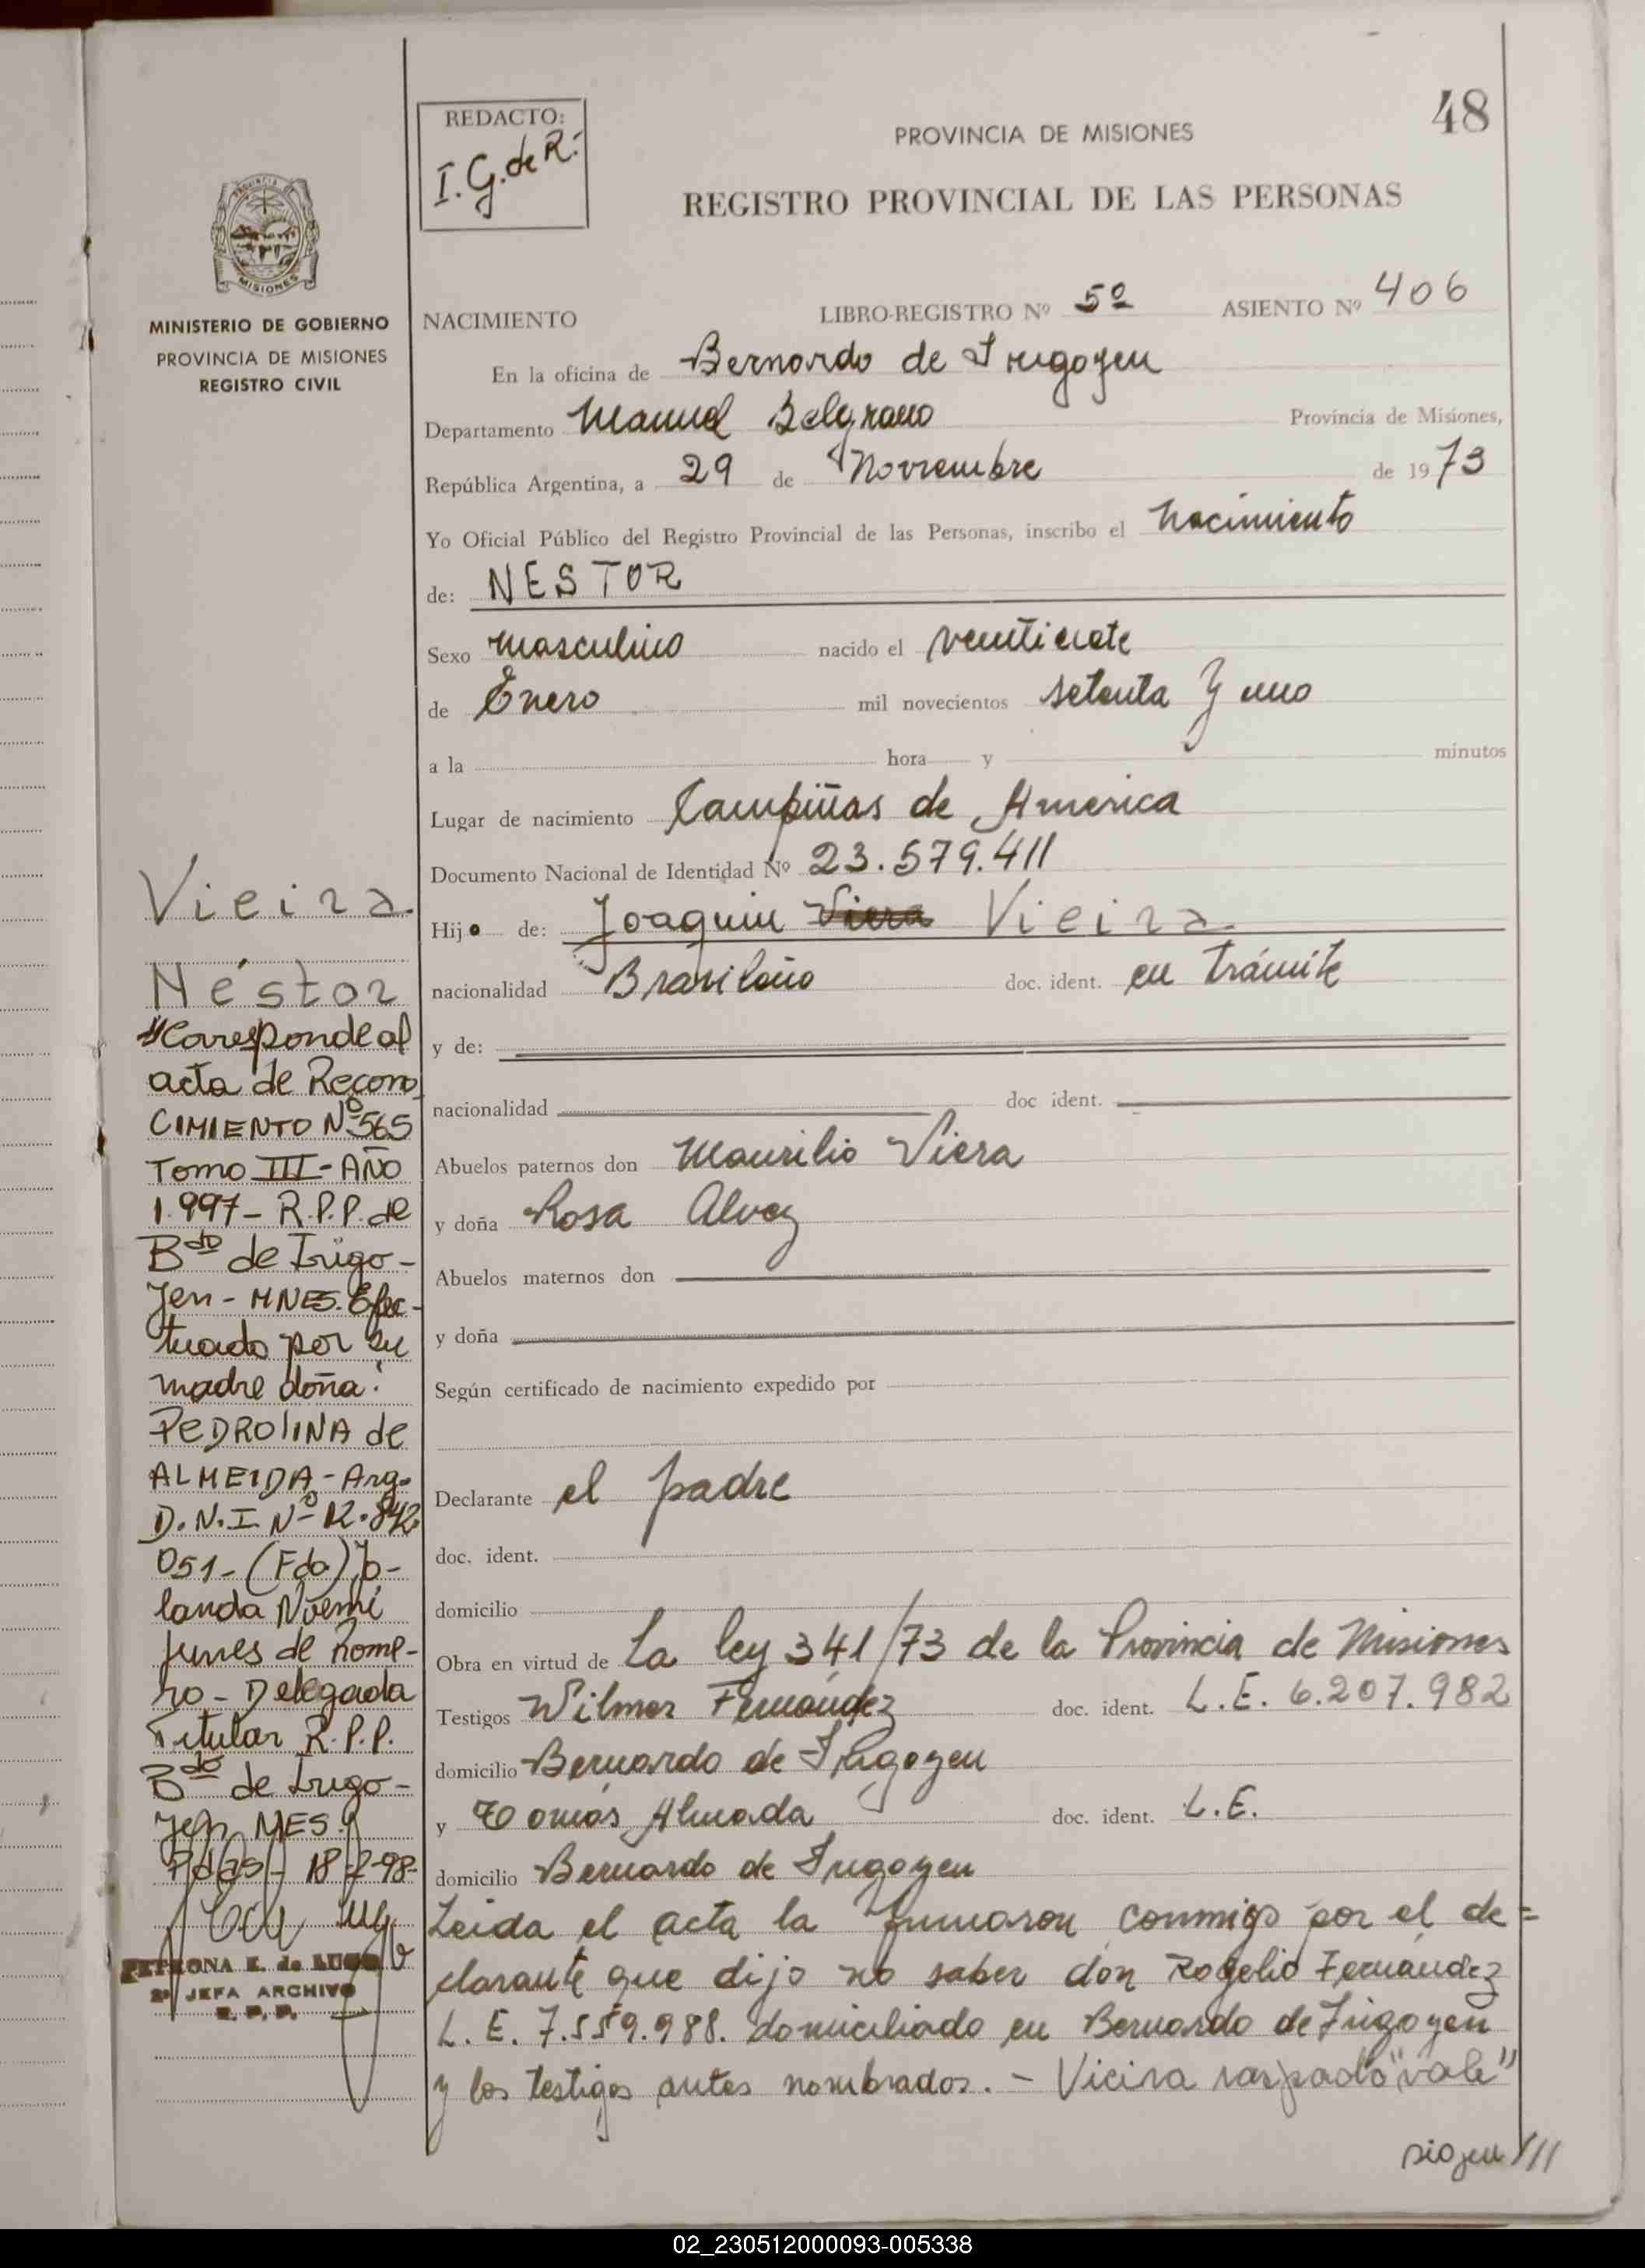 48
REDACTO:
I. G. de R.
PROVINCIA DE MISIONES
REGISTRO PROVINCIAL DE LAS PERSONAS
MISIONES
MINISTERIO DE GOBIERNO
PROVINCIA DE MISIONES
REGISTRO CIVIL
NACIMIENTO LIBRO-REGISTRO Nº 5º ASIENTO Nº 406
En la oficina de Bernardo de Irigoyen
Departamento Manuel Belgrano Provincia de Misiones,
República Argentina, a 29 de Noviembre de 1973
Yo Oficial Público del Registro Provincial de las Personas, inscribo el Nacimiento
de: NESTOR
Sexo masculino nacido el
de Enero mil novecientos setenta y uno
a la hora y minutos
Lugar de nacimiento Campiñas de America
Documento Nacional de Identidad Nº 23.579.411
Hijo de: Joaquin Viera Vieira
nacionalidad Brasileño doc. ident. en trámite
y de:
nacionalidad doc ident.
Abuelos paternos don Maurilio Viera
y doña Rosa Alvez
Abuelos maternos don
y doña
Según certificado de nacimiento expedido por
Declarante el padre
doc. ident.
domicilio
Obra en virtud de La ley 341/73 de la Provincia de Misiones
Testigos Wilmar Fernández doc. ident. L.E. 6.207.982
domicilio Bernardo de Irigoyen
y Tomás Almada doc. ident. L.E.
domicilio Bernardo de Irigoyen
Leida el acta la firmaron conmigo por el de=
clarante que dijo no saber don Rogelio Fernández
L. E. 7.559.988. domiciliado en Bernardo de Irigoyen
y los testigos antes nombrados. - Vieira raspado "vale"
siguen ///
Vieira
Néstor
"Corresponde al
acta de Recono
CIMIENTO Nº 565
Tomo III - AÑO
1.997 - R.P.P. de
Bdo de Irigo-
yen - MNES. Efec-
tuado por su
madre doña:
PEDROLINA de
ALMEIDA - Arg.
D.N.I. Nº 12.842.
051 - (Fdo) Yo-
landa Noemi
Junes de Rome-
ro - Delegada
Titular R.P.P.
Bdo de Irigo-
yen MNES.
Pdas - 18-2-98-
PETRONA E. de LUGO
2ª JEFA ARCHIVO
R. P. P.
02_230512000093-005338